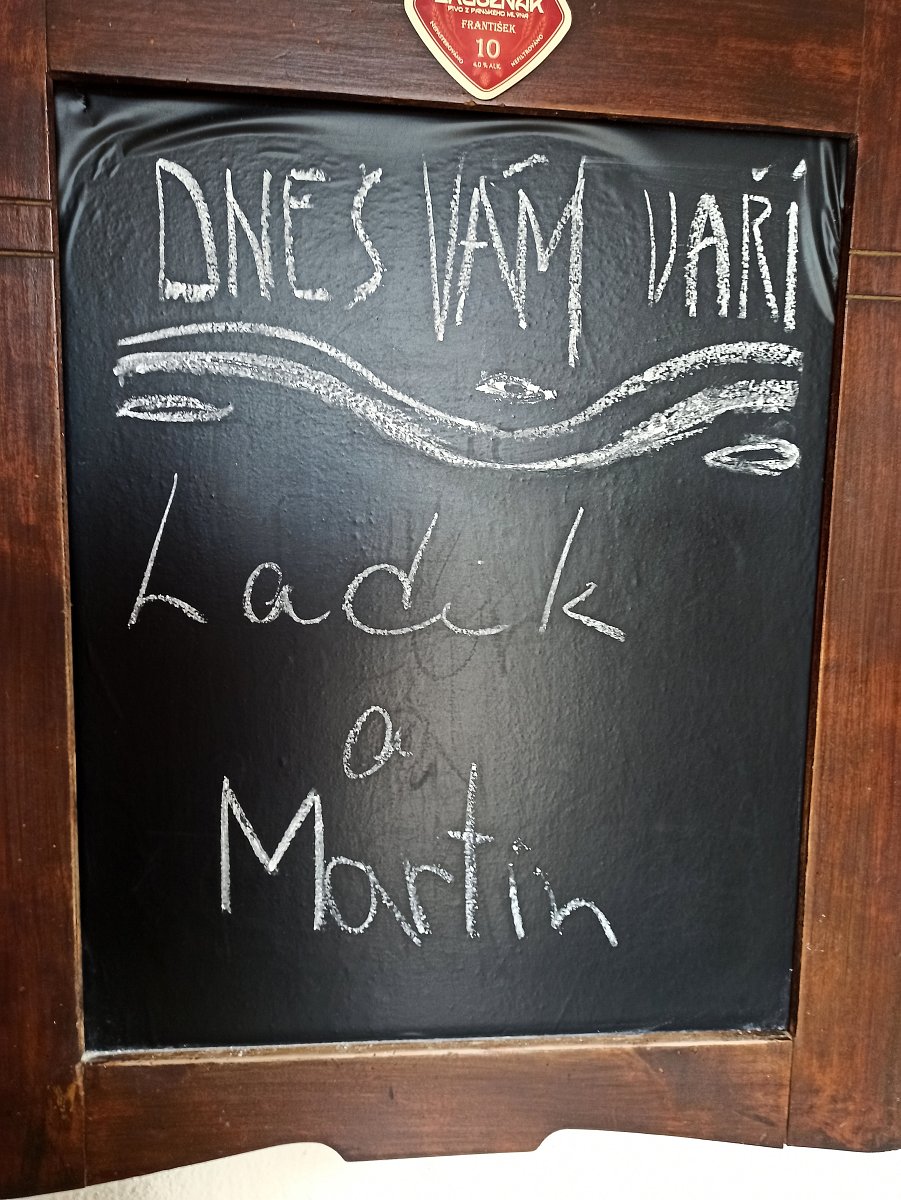 PIVO Z PANSKÉHO MLÝNA
FRANTIŠEK
10
4,0 % ALK.
NEPASTEROVÁNO
NEFILTROVÁNO
DNES VÁM VAŘÍ
Ladik
a
Martin